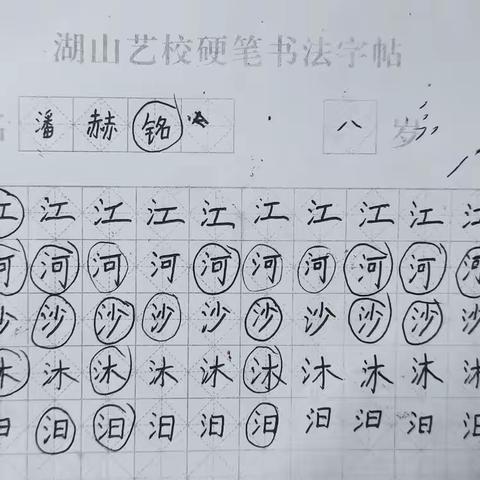 湖山艺校硬笔书法字帖
名 潘赫铭 八 岁
江江江江江江江江江江
河河河河河河河河河河
沙沙沙沙沙沙沙沙沙沙
沐沐沐沐沐沐沐沐沐沐
汨汨汨汨汨汨汨汨汨汨